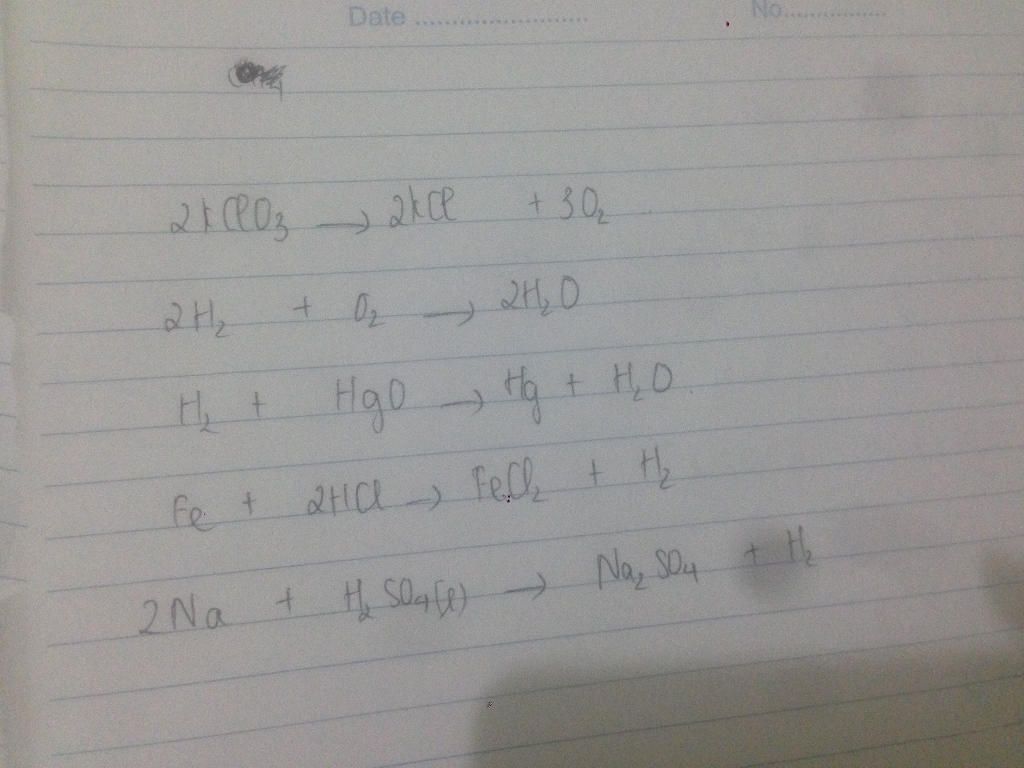 Date ........................... No.................
2KClO3 → 2KCl + 3O2
2H2 + O2 → 2H2O
H2 + HgO → Hg + H2O
Fe + 2HCl → FeCl2 + H2
2Na + H2SO4(l) → Na2SO4 + H2